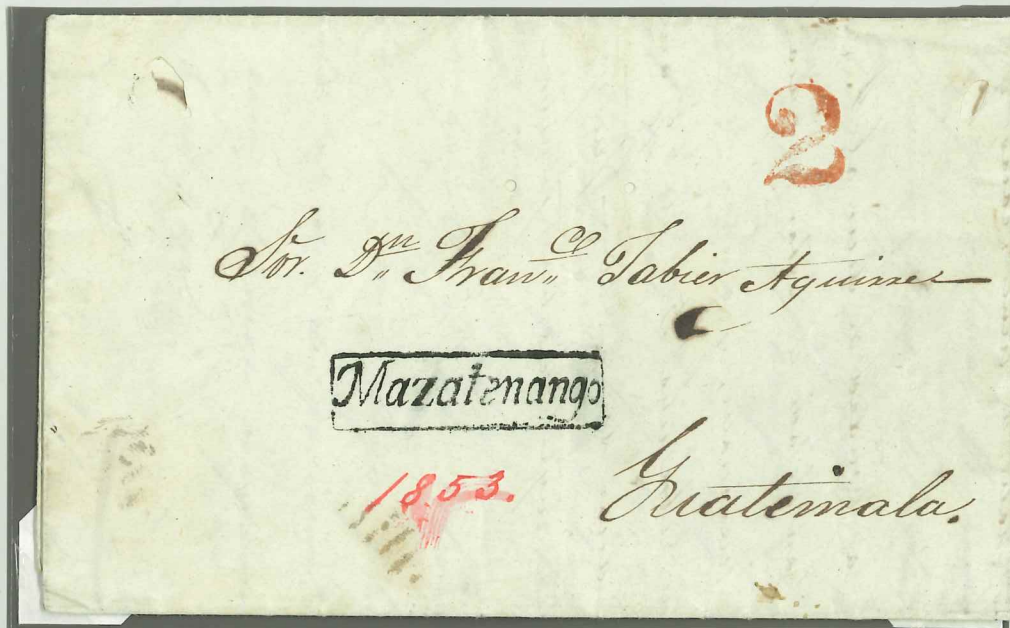 2
Sor. Dn Franco Jabier Aguirre
Mazatenango
1853.
Guatemala.